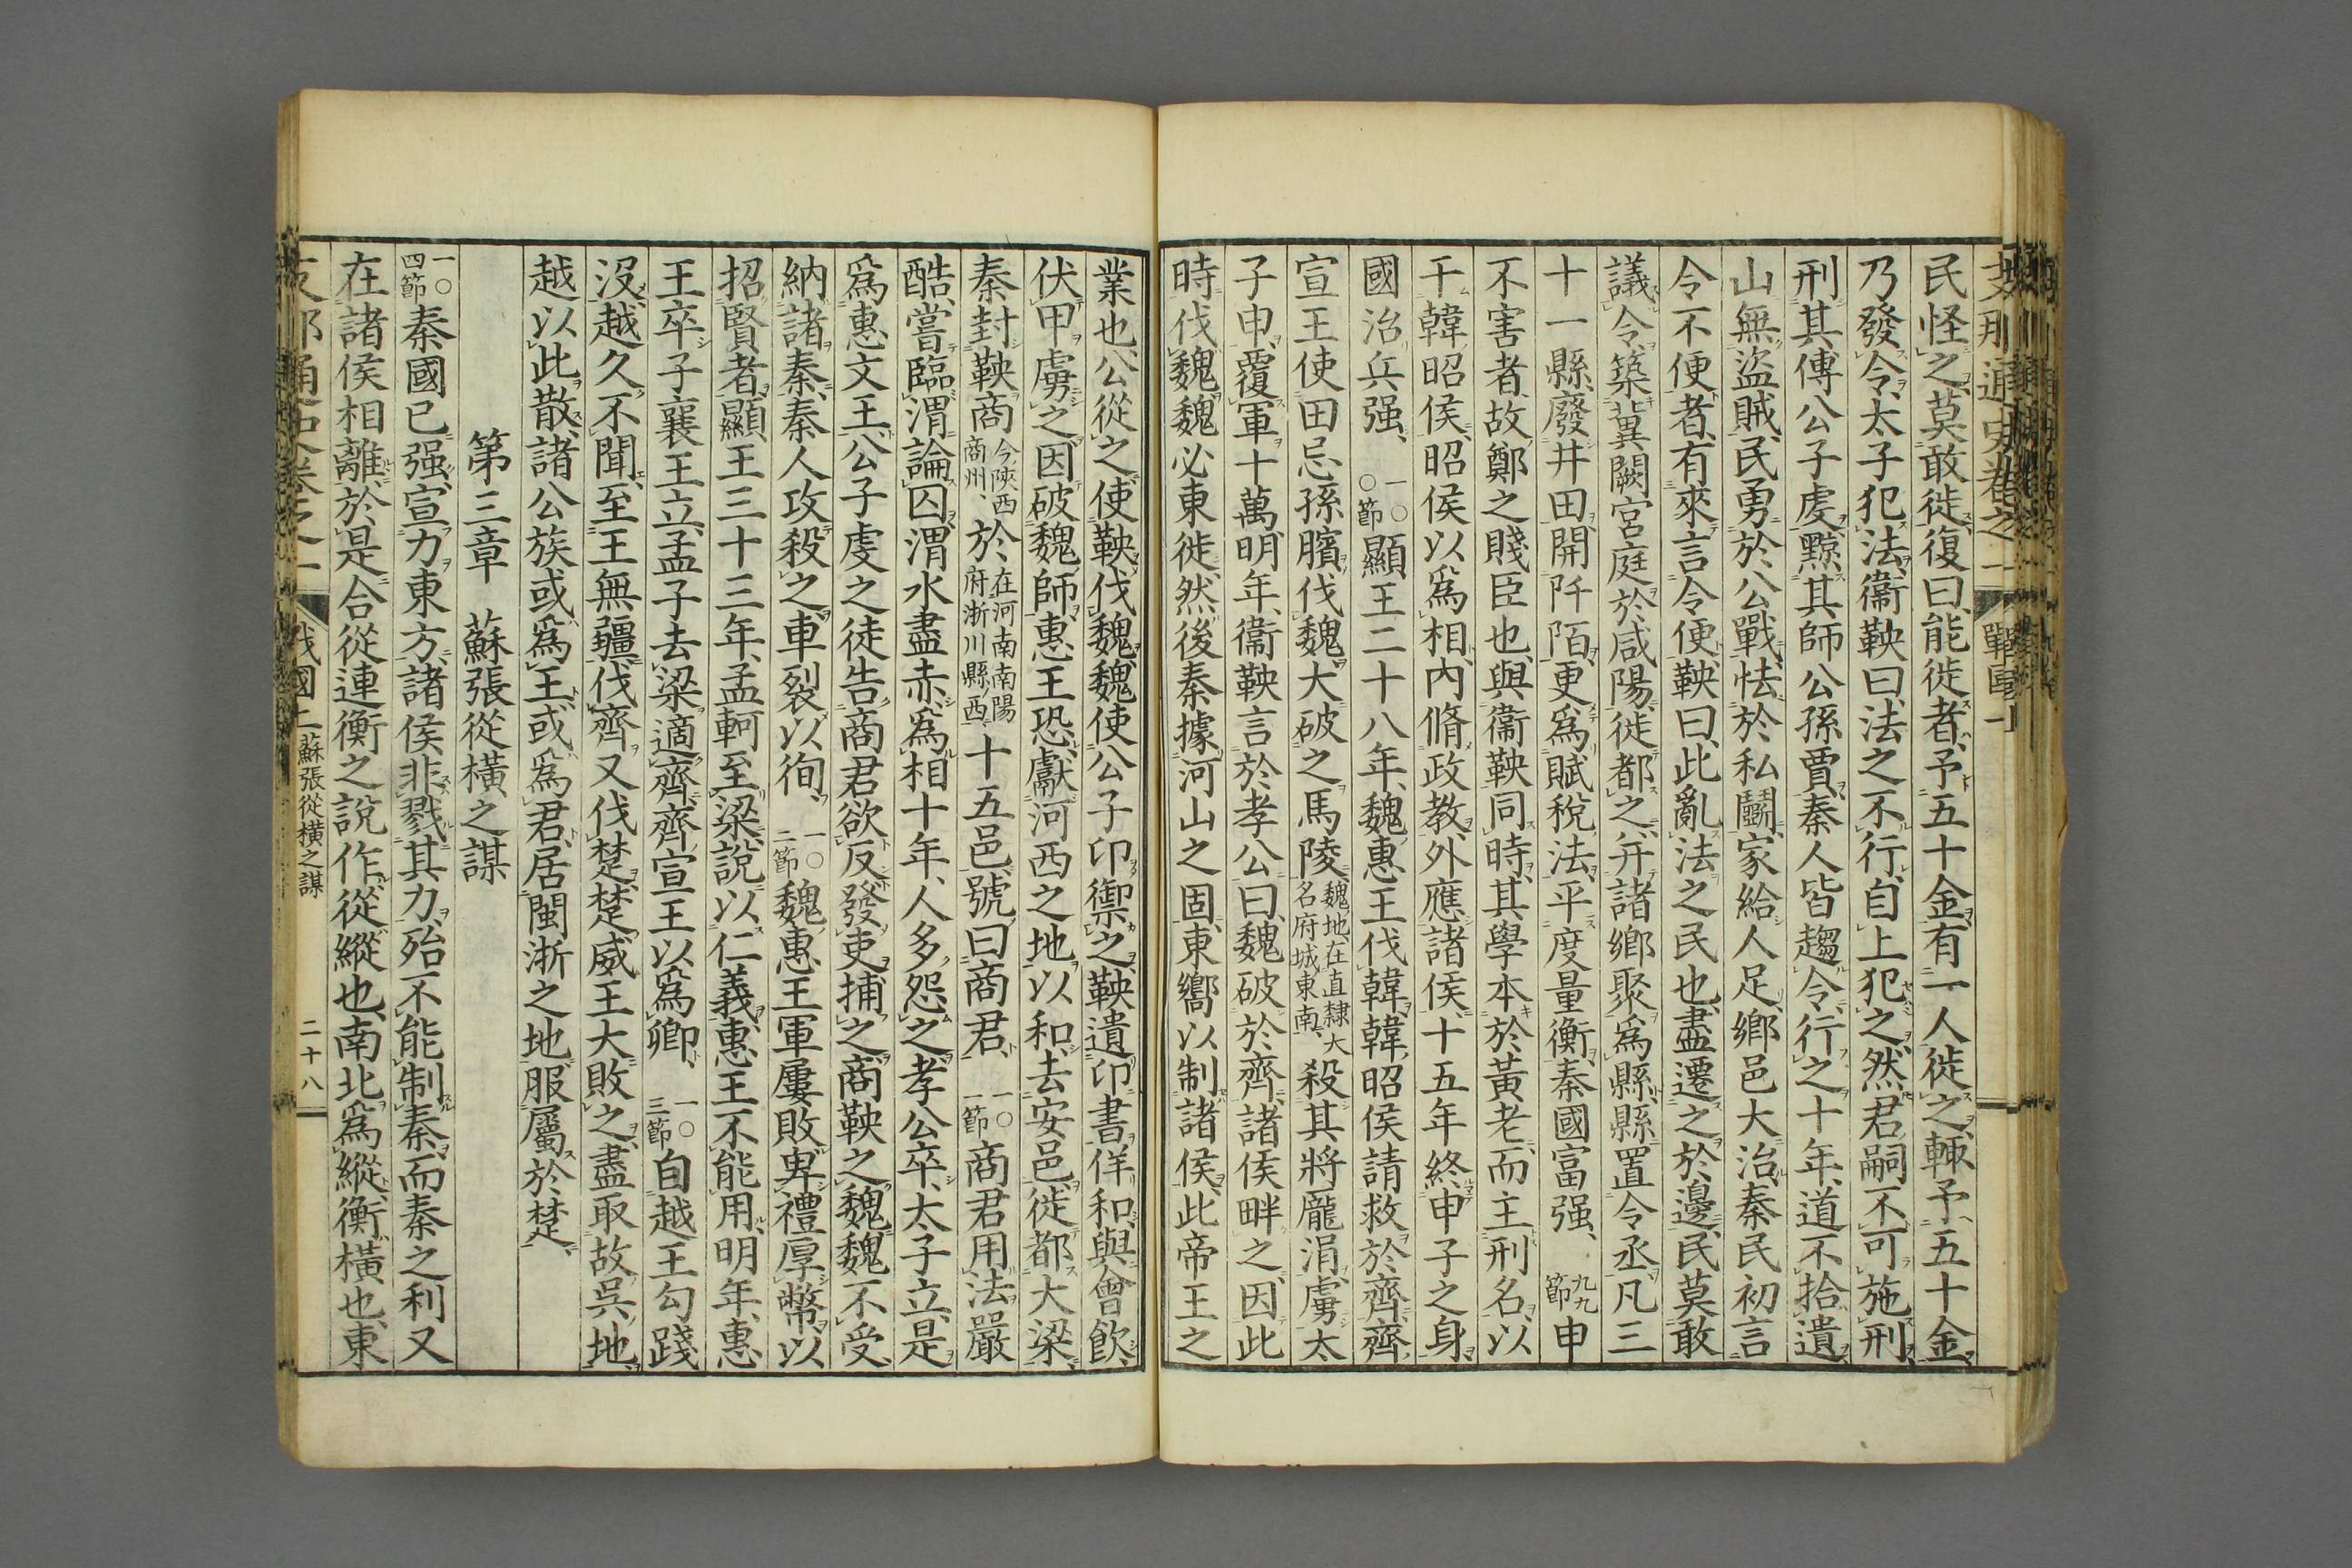 支那通史卷之一 戰國一
民怪之、莫敢徙、復曰、能徙者、予五十金、有一人徙之、輒予五十金、
乃發令、太子犯法、衞鞅曰、法之不行、自上犯之、然君嗣不可施刑、
刑其傅公子虔、黥其師公孫賈、秦人皆趨令、行之十年、道不拾遺、
山無盜賊、民勇於公戰、怯於私鬭、家給人足、鄉邑大治、秦民初言
令不便者、有來言令便、鞅曰、此亂法之民也、盡遷之於邊、民莫敢
議令、築冀闕宮庭於咸陽、徙都之、幷諸鄉聚爲縣、縣置令丞、凡三
十一縣、廢井田、開阡陌、更爲賦稅法、平度量衡、秦國富强、 九九節 申
不害者、故鄭之賤臣也、與衞鞅同時、其學本於黃老、而主刑名、以
干韓昭侯、昭侯以爲相、內脩政教、外應諸侯、十五年、終申子之身、
國治兵强、 一〇〇節 顯王二十八年、魏惠王伐韓、韓昭侯請救於齊、齊
宣王使田忌孫臏伐魏、大破之馬陵、 魏地、在直隸大名府城東南、 殺其將龐涓、虜太
子申、覆軍十萬、明年、衞鞅言於孝公曰、魏破於齊、諸侯畔之、因此
時伐魏、魏必東徙、然後秦據河山之固、東嚮以制諸侯、此帝王之
業也、公從之、使鞅伐魏、魏使公子卬禦之、鞅遺卬書、佯和、與會飮、
伏甲虜之、因破魏師、惠王恐、獻河西之地以和、去安邑、徙都大梁、
秦封鞅商 今陝西商州、 於、 在河南南陽府淅川縣西、 十五邑、號曰商君、 一〇一節 商君用法嚴
酷、嘗臨渭論囚、渭水盡赤、爲相十年、人多怨之、孝公卒、太子立、是
爲惠文王、公子虔之徒告商君欲反、發吏捕之、商鞅之魏、魏不受、
納諸秦、秦人攻殺之、車裂以徇、 一〇二節 魏惠王軍屢敗、卑禮厚幣、以
招賢者、顯王三十三年、孟軻至梁、說以仁義、惠王不能用、明年、惠
王卒、子襄王立、孟子去梁適齊、齊宣王以爲卿、 一〇三節 自越王勾踐
沒、越久不聞、至王無彊、伐齊又伐楚、楚威王大敗之、盡取故吳地、
越以此散、諸公族或爲王、或爲君、居閩浙之地、服屬於楚、
第三章 蘇張從橫之謀
一〇四節 秦國已强、宣力東方、諸侯非戮其力、殆不能制秦、而秦之利又
在諸侯相離、於是合從連衡之說作、從縱也、南北爲縱、衡橫也、東
支那通史卷之一 戰國二 蘇張從橫之謀 二十八